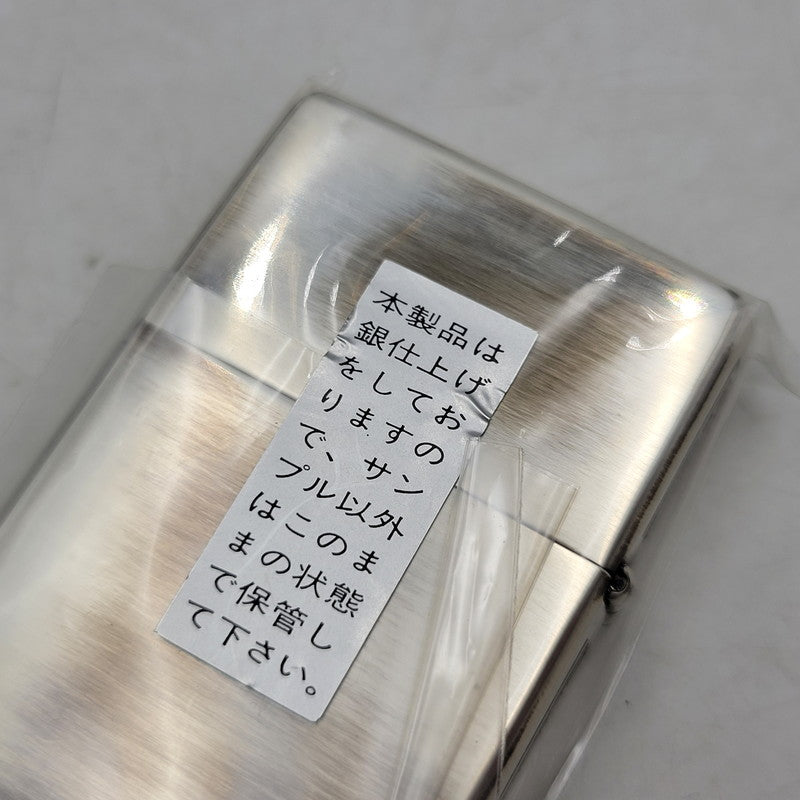 本製品は
銀仕上げ
をしてお
りますの
で、サン
プル以外
はこのま
まの状態
で保管し
て下さい。